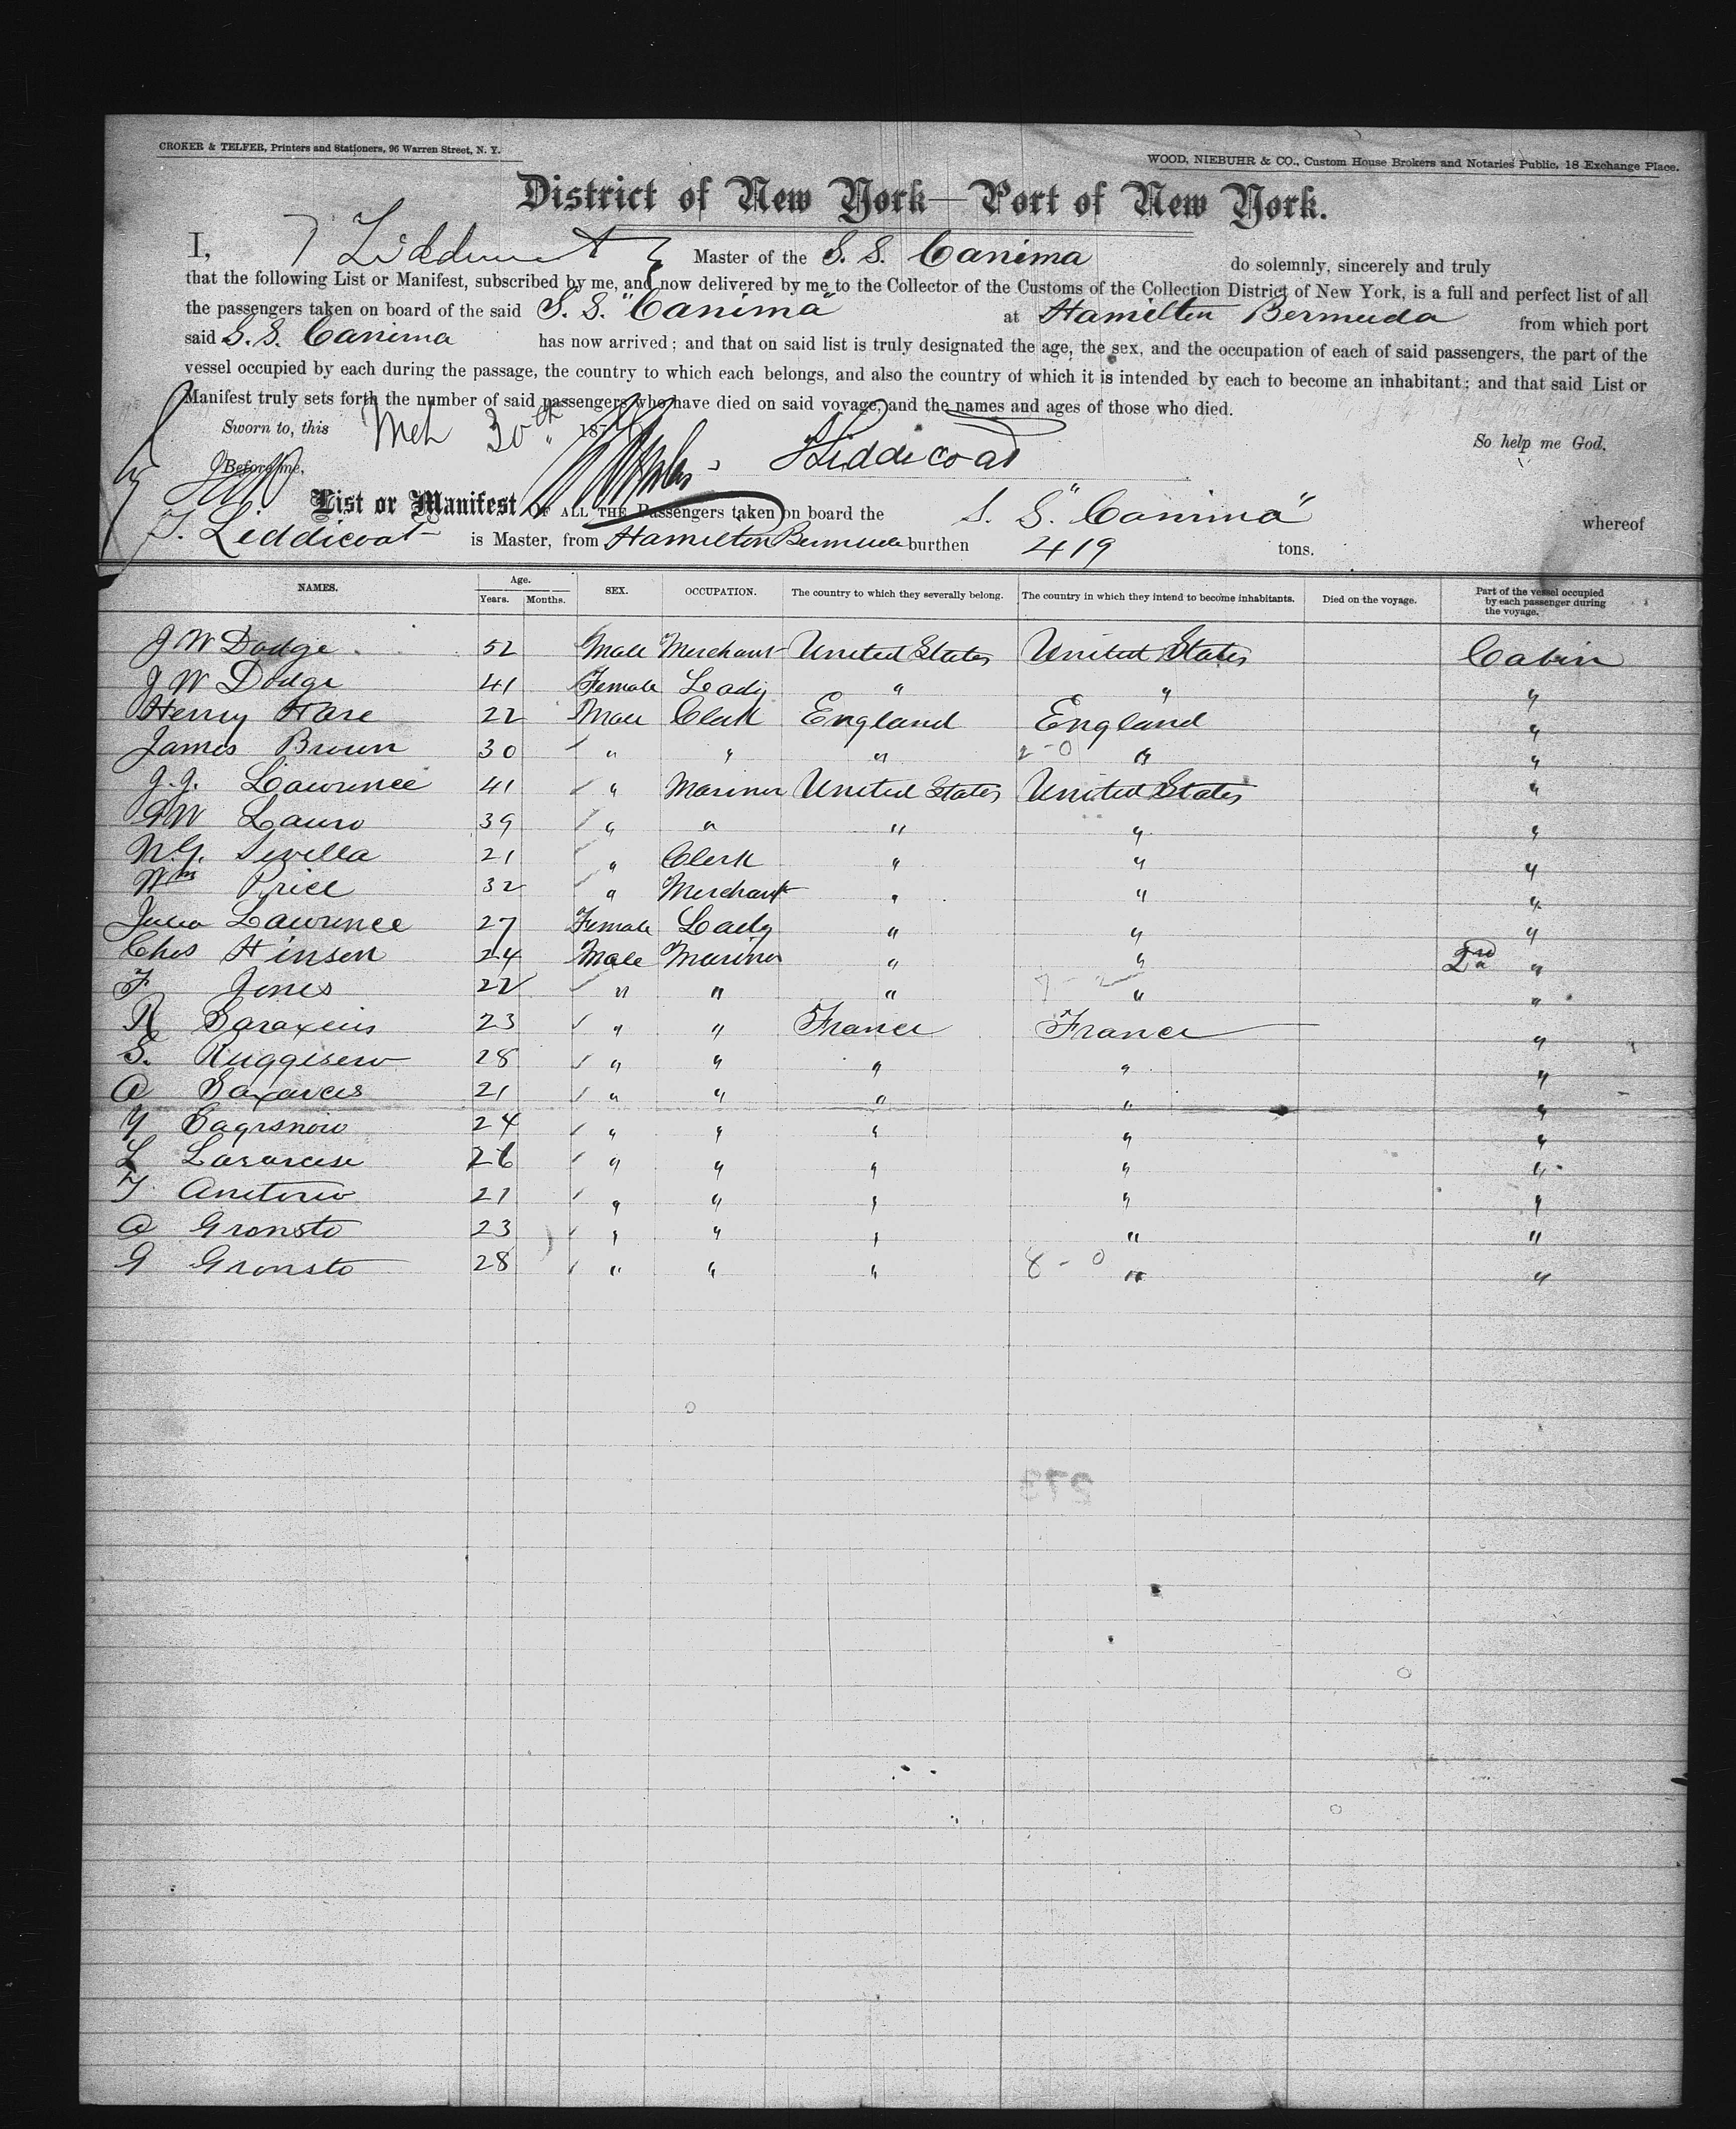 CROKER & TELFER, Printers and Stationers, 96 Warren Street, N. Y.
WOOD, NIEBUHR & CO., Custom House Brokers and Notaries Public, 18 Exchange Place.
District of New York—Port of New York.
I, Master of the S. S. Canima do solemnly, sincerely and truly
that the following List or Manifest, subscribed by me, and now delivered by me to the Collector of the Customs of the Collection District of New York, is a full and perfect list of all
the passengers taken on board of the said S. S. "Canima" at Hamilton Bermuda from which port
said S. S. Canima has now arrived; and that on said list is truly designated the age, the sex, and the occupation of each of said passengers, the part of the
vessel occupied by each during the passage, the country to which each belongs, and also the country of which it is intended by each to become an inhabitant; and that said List or
Manifest truly sets forth the number of said passengers who have died on said voyage, and the names and ages of those who died.
Sworn to, this Mch 30th 187 So help me God.
Before me, Liddicoat
List or Manifest OF ALL THE Passengers taken on board the S. S. "Canima" whereof
T. Liddicoat is Master, from Hamilton Bermuda burthen 419 tons.
NAMES. Age. Years. Months. SEX. OCCUPATION. The country to which they severally belong. The country in which they intend to become inhabitants. Died on the voyage. Part of the vessel occupied by each passenger during the voyage.
J W Dodge 52 Male Merchant United States United States Cabin
J W Dodge 41 Female Lady " " "
Henry Hare 22 Male Clerk England England "
James Brown 30 " " " 2-0 " "
J. J. Lawrence 41 " Mariner United States United States "
39 " " " " "
21 " Clerk " " "
Wm Price 32 " Merchant " " "
Julia Lawrence 27 Female Lady " " "
Chas Hinson 24 Male Mariner " " 2nd "
F Jones 22 " " " 7-2 " "
23 " " France France "
S. 28 " " " " "
A 21 " " " " "
24 " " " " "
L 26 " " " " "
21 " " " " "
A Gronsto 23 " " " " "
G Gronsto 28 " " " 8-0 " "